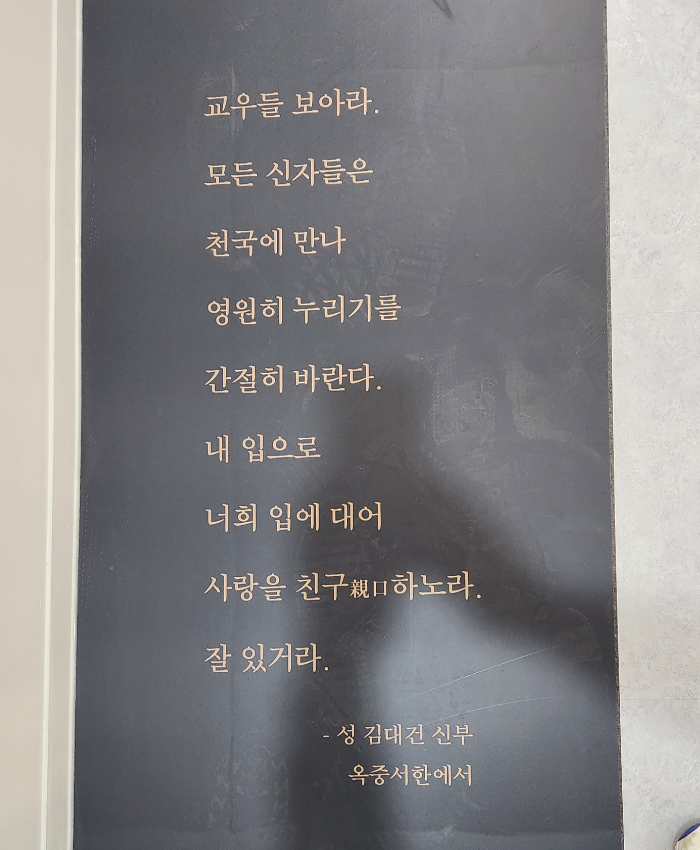 교우들 보아라.
모든 신자들은
천국에 만나
영원히 누리기를
간절히 바란다.
내 입으로
너희 입에 대어
사랑을 친구親口하노라.
잘 있거라.
- 성 김대건 신부
옥중서한에서